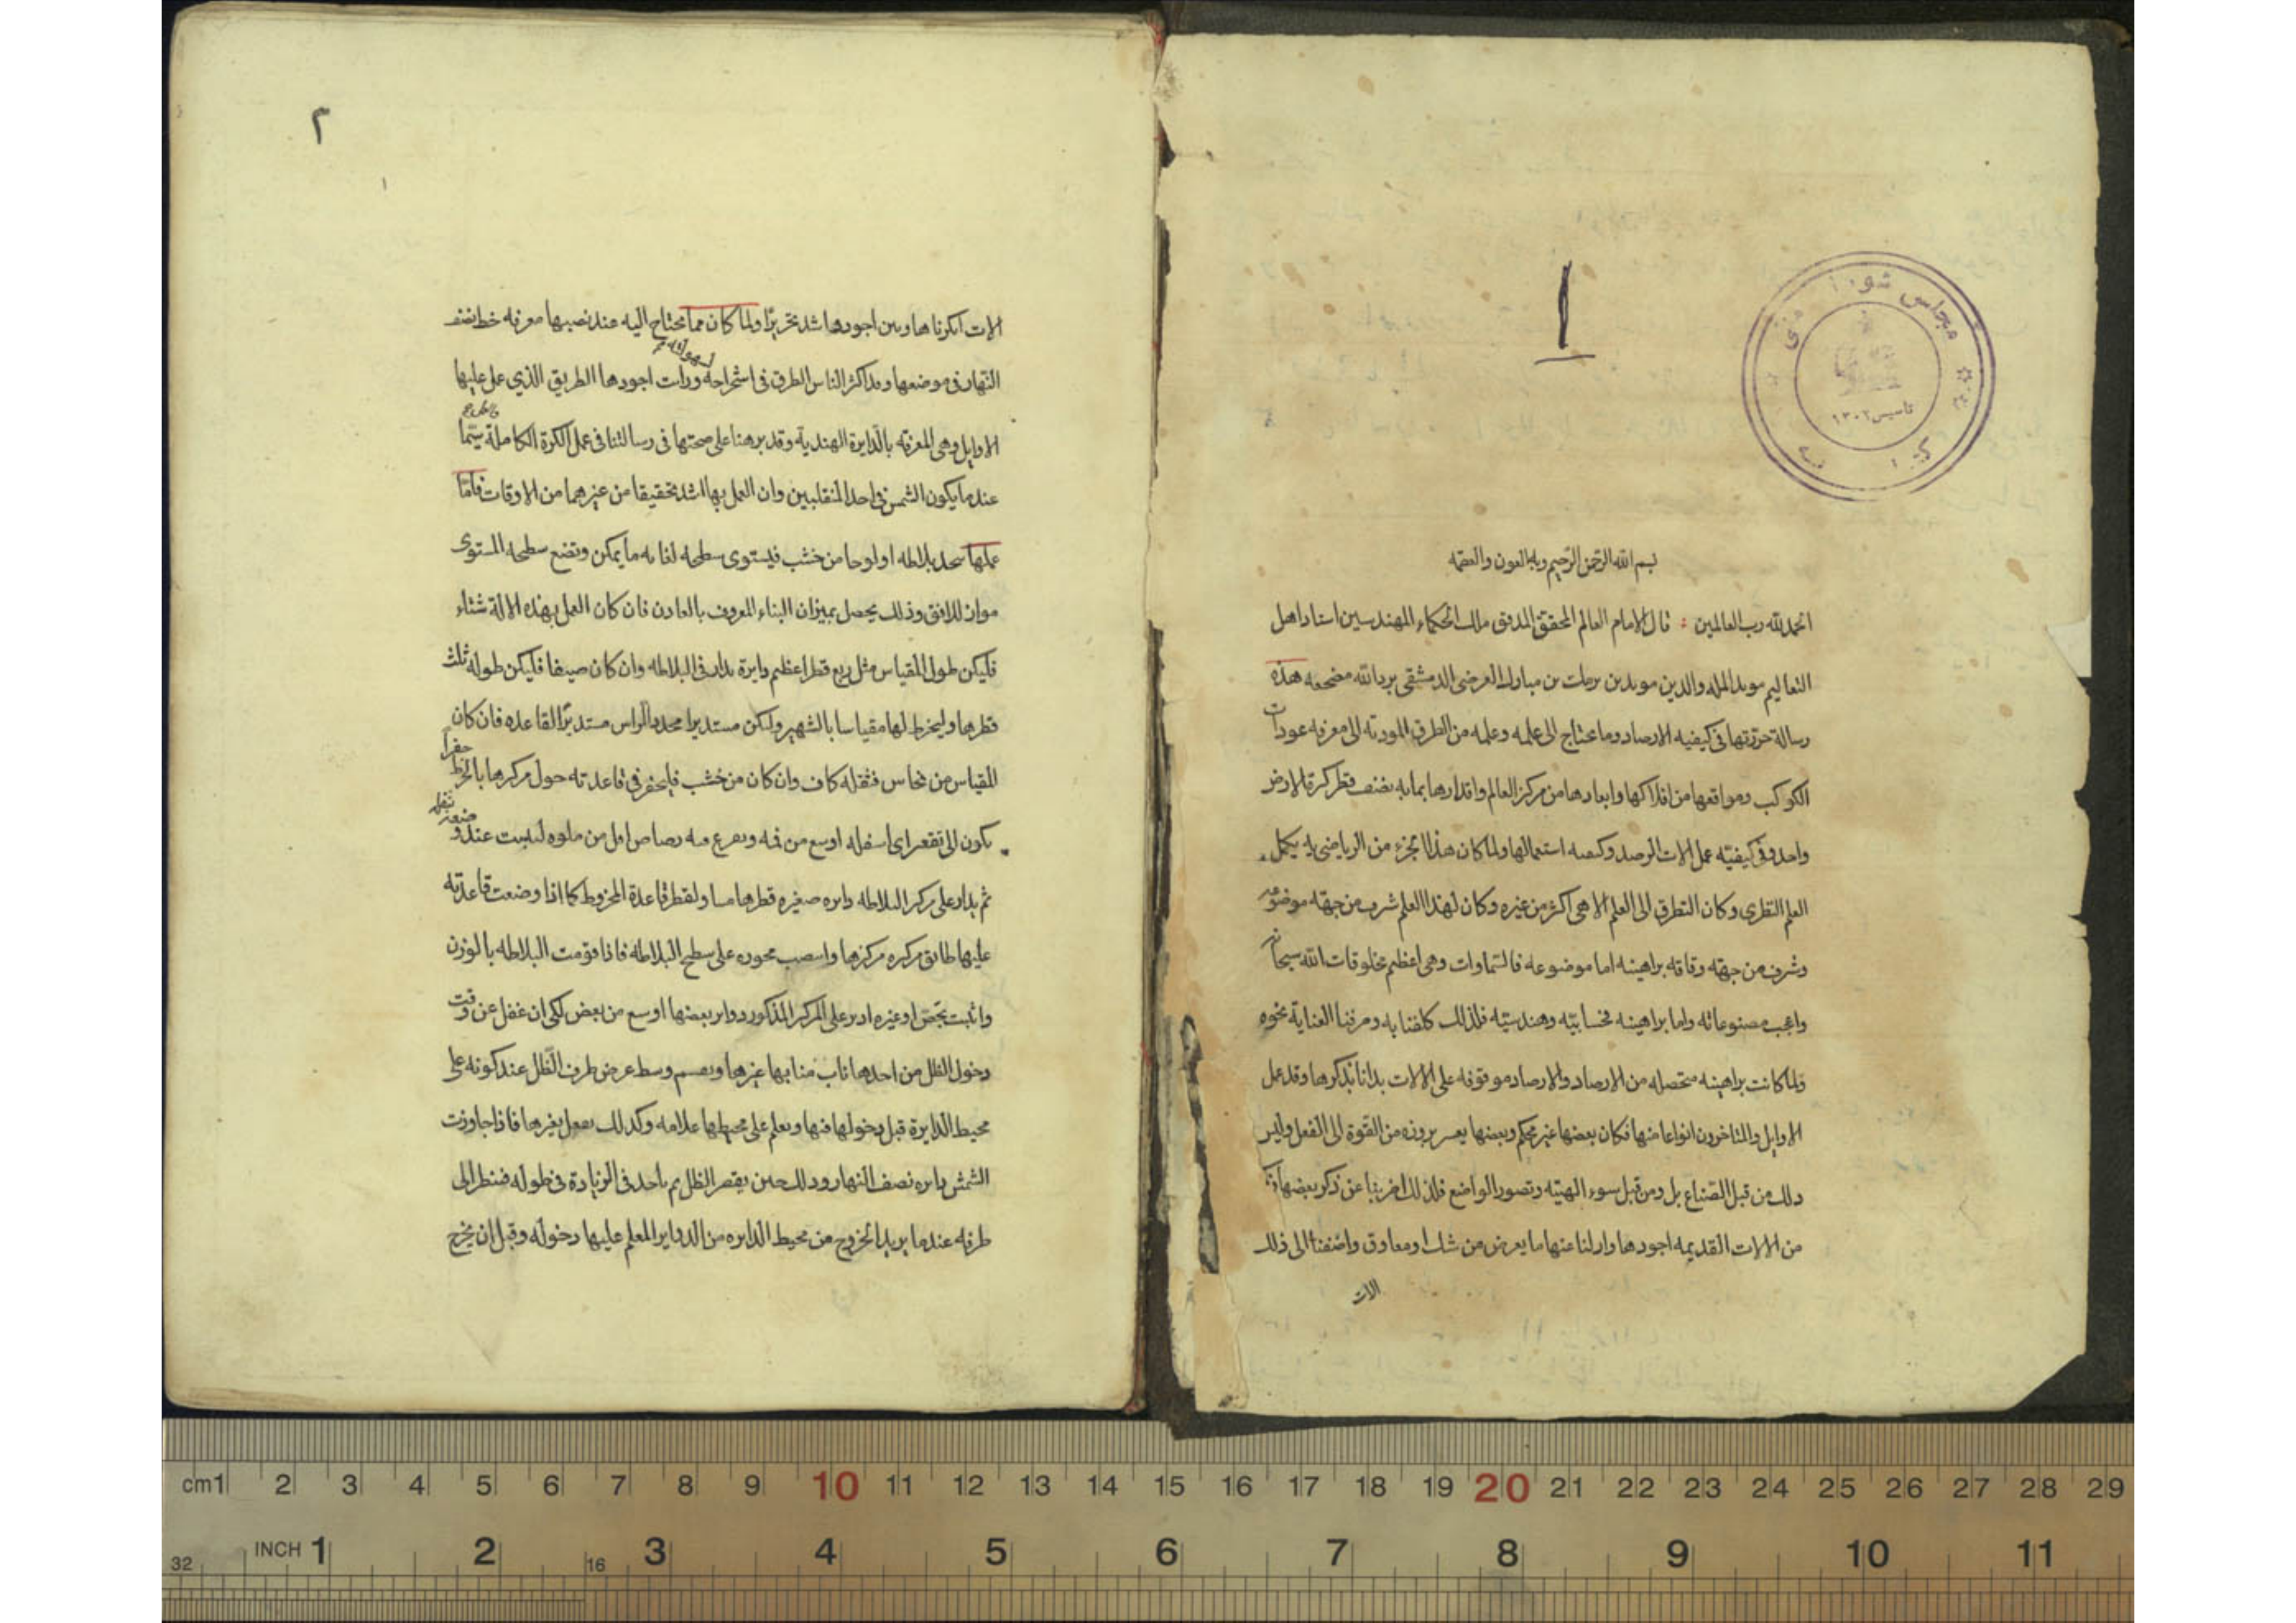 مجلس شورا
تاسیس ۱۳۰۲
بسم الله الرحمن الرحيم وبه العون والعصمه
الحمد لله رب العالمين قال الامام العالم المحقق المدقق ملك الحكماء المهندسين استاد اهل
التعاليم مويد المله والدين مويد بن برمك بن مبارك العرضى الدمشقى برد الله مضجعه هذه
رسالة حررتها فى كيفيه الارصاد وما يحتاج الى علمه وعمله من الطرق المودية الى معرفه عودات
الكواكب ومواقعها من افلاكها وابعادها من مركز العالم واقدارها بما به نصف قطر كرة الارض
واحد وفى كيفيته عمل الات الرصد وكيفيه استعمالها ولما كان هذا الجزء من الرياضى به يكمل
العلم النظرى وكان التطرق الى العلم الالاهى اكثر من غيره وكان لهذا العلم شرف من جهته موضوعه
وشرف من جهته وثاقه براهينه اما موضوعه فالسماوات وهى اعظم مخلوقات الله سبحانه
واعجب مصنوعاته واما براهينه فحسابيه وهندسيه فلذلك كلفنا به وصرفنا العناية نحوه
ولما كانت براهينه متحصله من الارصاد والارصاد موقوفه على الالات بدانا بذكرها وقد عمل
الاوايل والمتاخرون انواعا منها فكان بعضها غير محكم وبعضها يعسر بروزه من القوة الى الفعل وليس
ذلك من قبل الصناع بل ومن قبل سوء الهيئه وتصور الواضع فلذلك اضربنا عن ذكر بعضها
من الالات القديمه اجودها وازلنا عنها ما يعرض من شك ومعاوق واضفنا الى ذلك
الات
۲
الات ابتكرناها وبين اجودها اشد تحريرا ولما كان مما يحتاج اليه عند نصبها معرفه خط نصف
النهار فى موضعها وقد اكثر الناس الطرق فى استخراجه ورأيت اجودها الطريق الذي عمل عليها
الاوايل وهى المعرفه بالدايرة الهندية وقد برهنا على صحتها فى رسالتنا فى عمل الكرة الكاملة سيما
عندما يكون الشمس فى احد المنقلبين وان العمل بها اشد تحقيقا من غيرهما من الاوقات فاما
عملها تتخذ بلاطه او لوحا من خشب فيستوى سطحه لغايه ما يمكن وتضع سطحه المستوى
مواز للافق وذلك يحصل بميزان البناء المعروف بالعادن فان كان العمل بهذه الالة شتاء
فليكن طول المقياس مثل ربع قطر اعظم دايرة تدار فى البلاطه وان كان صيفا فليكن طوله ثلث
قطرها وليخرط لها مقياسا بالشهير وليكن مستديرا محدد الراس مستدير القاعده فان كان
المقياس من نحاس فثقله كاف وان كان من خشب فليحفر فى قاعدته حول مركزها بالخرط حفرا
يكون الى تقعر اى اسفله اوسع من فمه ويفرغ فيه رصاص اقل من ملوه ليثبت عند وضعه بثقله
ثم يدار على مركز البلاطه دايره صغيره قطرها مساو لقطر قاعدة المخروط كما اذا وضعت قاعدته
عليها طابق مركزه مركزها وانتصب محوره على سطح البلاطه فاذا قومت البلاطه بالوزن
واثبتت بجص او غيره ادير على المركز المذكور دواير بعضها اوسع من بعض لكى ان غفل عن وقت
دخول الظل من احدها ناب منابها غيرها ويقسم وسط عرض طرف الظل عند كونه على
محيط الدايرة قبل دخولها فيها ويعلم على محيطها علامه وكذلك يفعل بغيرها فاذا جاوزت
الشمس دايره نصف النهار وذلك حين يقصر الظل ثم ياخذ فى الزيادة فى طوله فننظر الى
طرفه عندما يريد الخروج من محيط الدايره من الدواير المعلم عليها دخوله وقبل ان يخرج